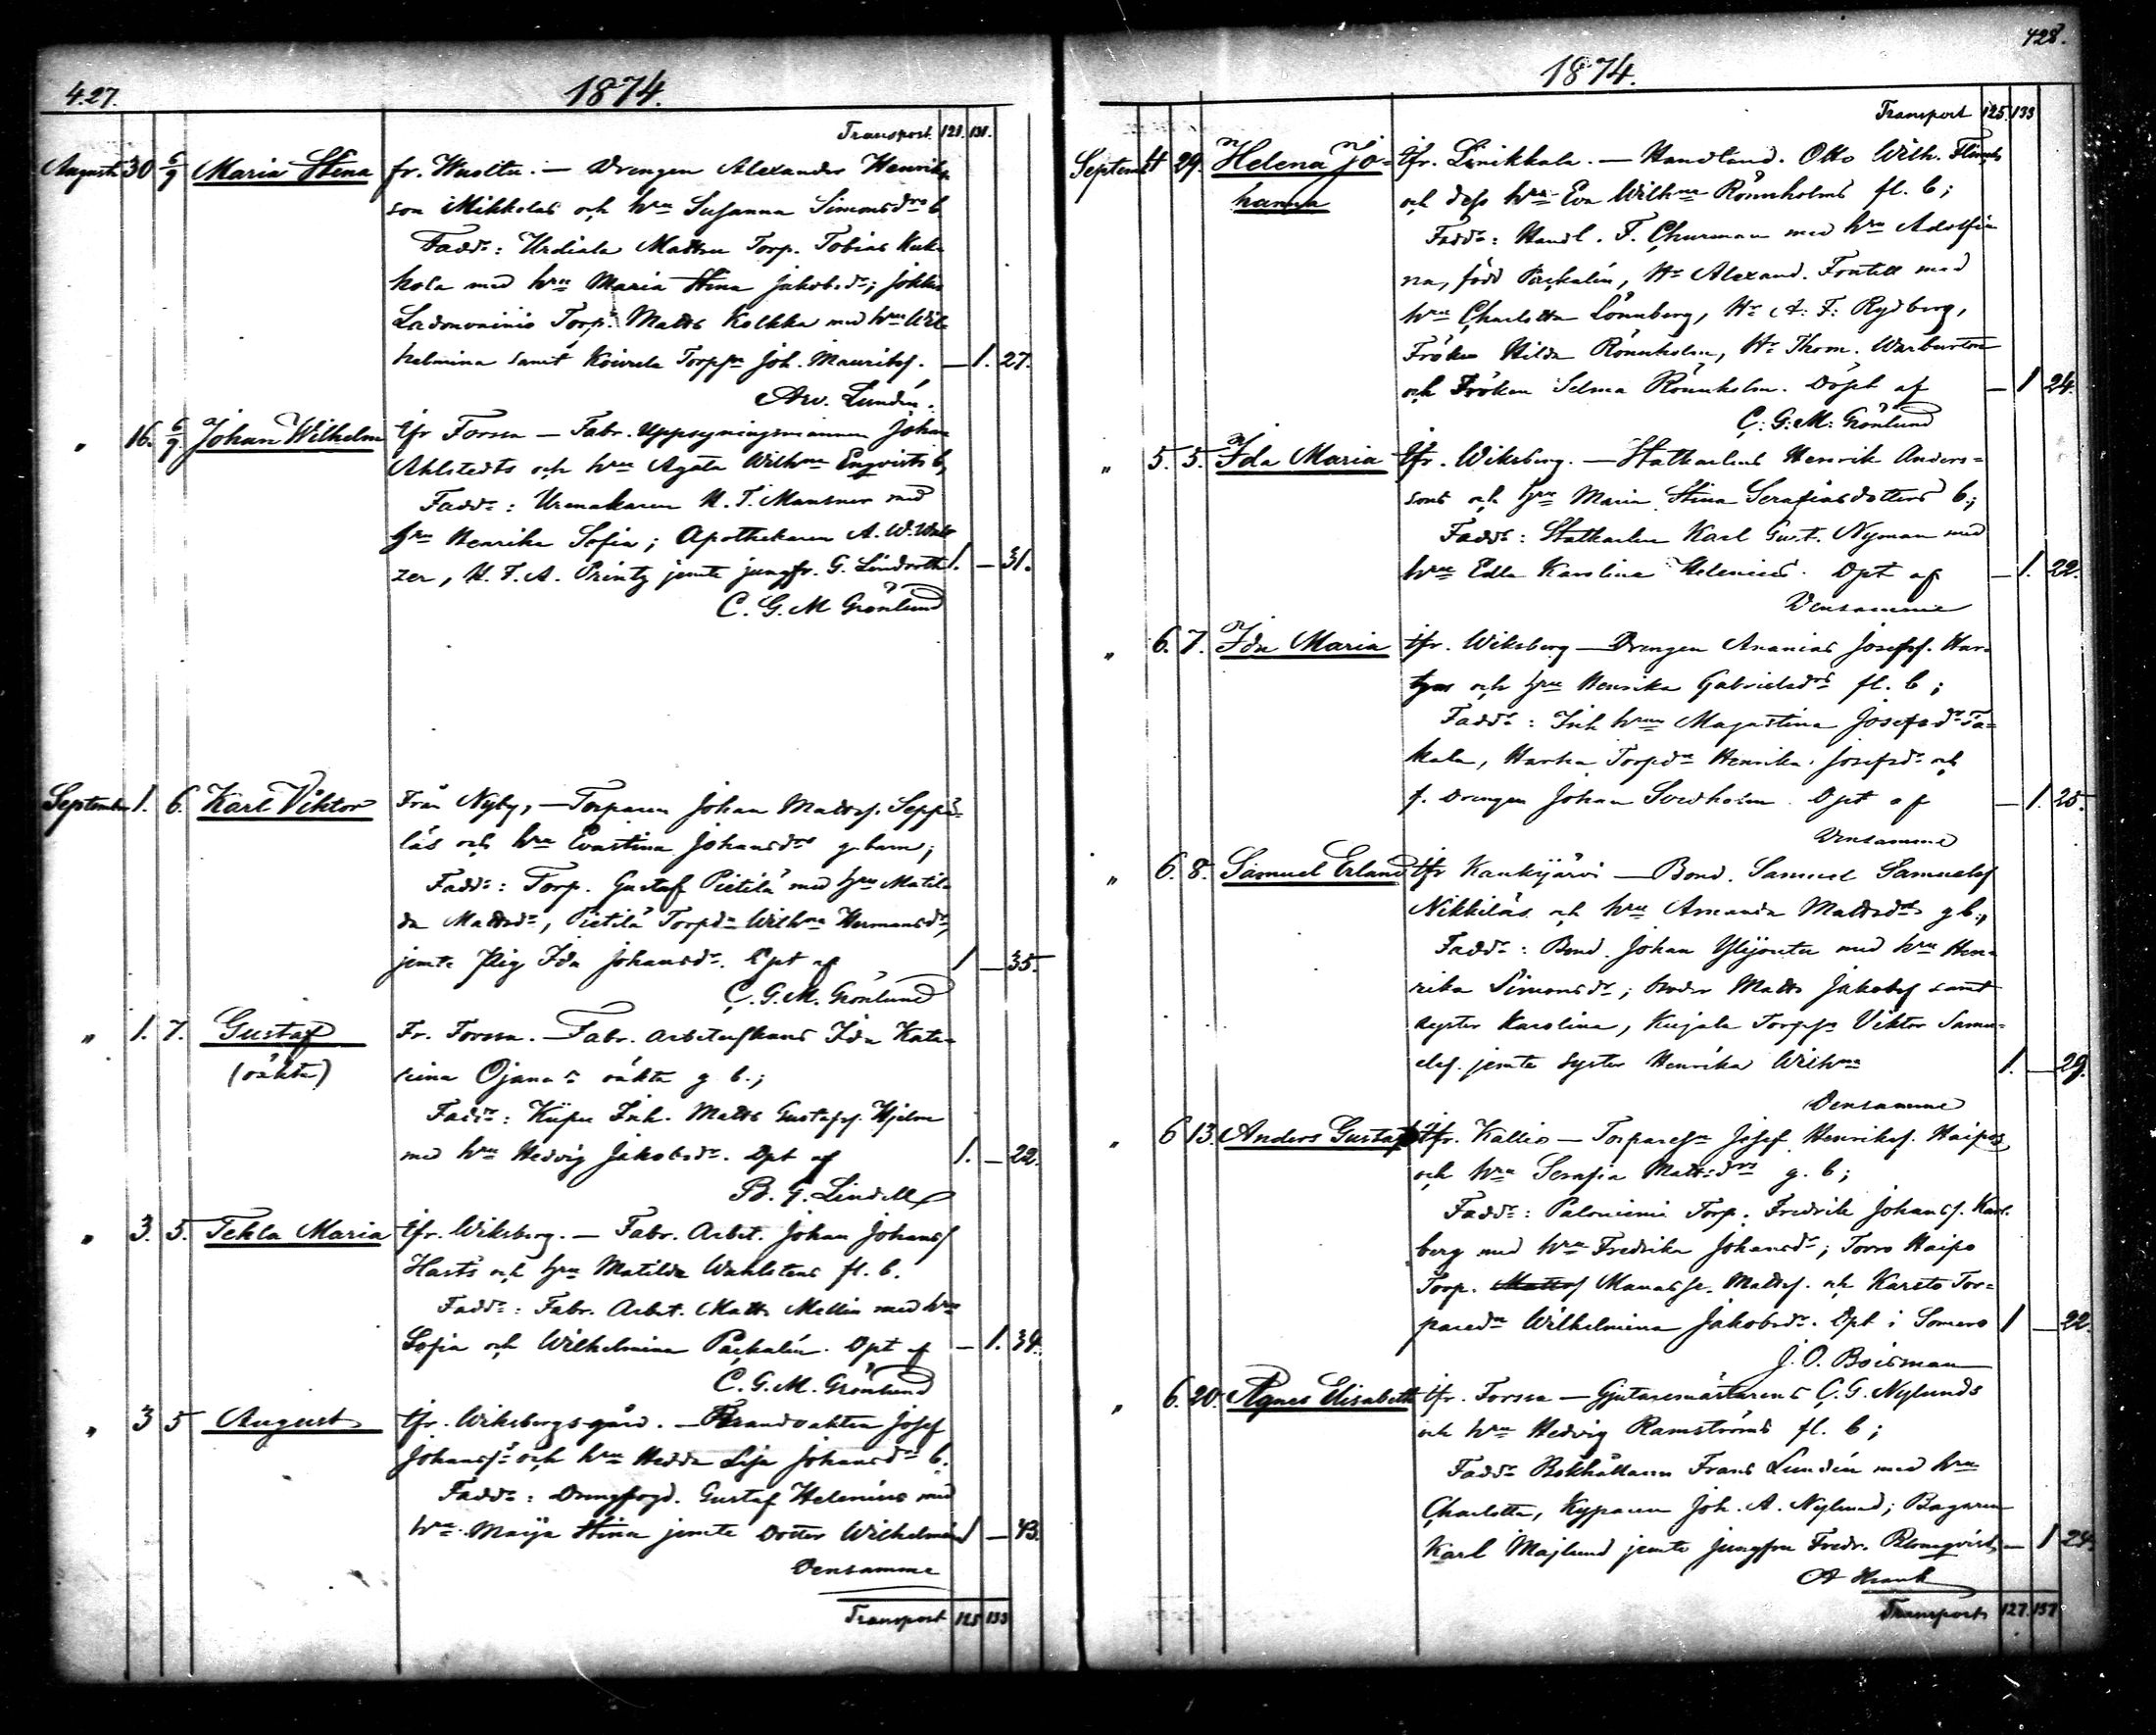 427.
1874.
Transport 121. 131.
Augusti 30 6/9 Maria Stina fr. Wuoltu. — Drengen Alexander Henriks
son Mikkolas och hru Susanna Simonsdrs b
Fadd: Urdiala Mattsu Torp. Tobias Kuk
hola med hru Maria Stina Jakobsd; Jokkis
Torp. Matts Kolkka med hru Wil
helmina samt Koivula Torps Joh. Mauritsf. — 1. 27.
Arv. Lundén.
" 16. 6/9. Johan Wilhelm tfr Forssa — Fabr. Uppsyningsmannen Johan
Ahlstedts och hru Agata Wilhna Enqvists b,
Fadd: Urmakaren K. T. Mansner med
hru Henrika Sofia; Apothekaren A. W. Walt
zer, K. F. A. Printz jemte jungfr. G. Lindroth 1. — 31.
C. G. M Grönlund
September 1. 6. Karl Viktor Från Nyby, — Torparen Johan Mattsf. Seppä-
läs och hru Evastina Johansdrs g. barn;
Fadd: Torp. Gustaf Pietilä med hru Matil
da Mattsd, Pietilä Torpd Wilhna Hermansd,
jemte Ida Johansd. Dpt af 1 — 35.
C. G. M. Grönlund
" 1. 7. Gustaf Fr. Forssa. — Fabr. Ida Kata-
(oäkta) rina Ojanes oäkta g b.;
Fadd: Inh. Matts Gustafsf. Hjelm
med hru Hedvig Jakobsd. Dpt af 1. — 22.
B. G. Lindell
" 3. 5. Tekla Maria tfr. Wiksberg. — Fabr. Arbet. Johan Johansf
Hasts och hru Matilda Wahlstens fl. b.
Fadd: Fabr. Arbet. Matts Mellin med hru
Sofia och Wilhelmina Packalén. Dpt af — 1. 34.
C. G. M. Grönlund
" 3 5 August tfr. Wiksbergs gård. — Brandvakten Josef
Johansfs och hru Hedda Lisa Johansd b.
Fadd: Drengfogd. Gustaf Helenius med
hru Maija Stina jemte Dotter Wilhelmina 1 — 43.
Densamme
Transport 125 133
428.
1874.
Transport 125. 133
Septemb 4 29. Helena Jo- tfr. Linikkala. — Handland. Otto Wilh.
hanna och dess hru Eva Wilhna Rönnholms fl. b;
Fadd: Handl. F. Churman med hru Adolfi
na, född Packalén, Hr Alexand. Fontell med
hru Charlotta Lönnberg, Hr A. F. Rydberg,
Fröken Hilda Rönnholm, Hr Thom. Warburton
och Fröken Selma Rönnholm. Döpt af — 1 24.
C. G. M. Grönlund
" 5. 5. Ida Maria tfr. Wiksberg. — Statkarlens Henrik Anders-
sons och hru Maria Stina Serafiasdotters b.;
Fadd: Statkarlen Karl Gust. Nyman med
hru Edla Karolina Helenius. Dpt af — 1. 22.
Densamme
" 6. 7. Ida Maria tfr. Wiksberg — Drengen Ananias Josefsf. Har-
och hru Henrika Gabrielsdrs fl. b;
Fadd: Inh hru Magastina Josefsd Ta-
kala, Harha Torpd Henrika Josefsd och
f. Drengen Johan Svedholm. Dpt af — 1. 25.
Densamme
" 6. 8. Samuel Erland tfr Kaukijärvi — Bond. Samuel Samuelsf
Nikkiläs och hru Amanda Mattsdrs g b.,
Fadd: Bond. Johan Ylijoutu med hru Hen-
rika Simonsd; broder Matts Jakobsf samt
syster Karolina, Kujala Torpfs Viktor Samu-
elsf. jemte syster Henrika Wilhna 1. — 29.
Densamme
" 6 13. Anders Gustaf tfr. Kallio — Torparefs Josef Henriksf. Haipos
och hru Serafia Mattsdrs g. b;
Fadd: Palomimi Torp. Fredrik Johansf. Karl-
berg med hru Fredrika Johansd; Torro Haipo
Torp. Manasse. Mattsf. och Kareto Tor-
pared Wilhelmina Jakobsd. Dpt i Somero 1 — 22.
J. O. Boisman
" 6. 20. Agnes Elisabeth tfr. Forssa — Gjutaremästarens C. G. Nylunds
och hru Hedvig Ramströms fl. b;
Fadd Bokhållaren Frans Lundén med hru
Charlotta, Kyparen Joh. A. Nylund; Bagaren
Karl Majlund jemte jungfru Fredr. Blomqvist, — 1 24.
A Hrank
Transport 127. 137